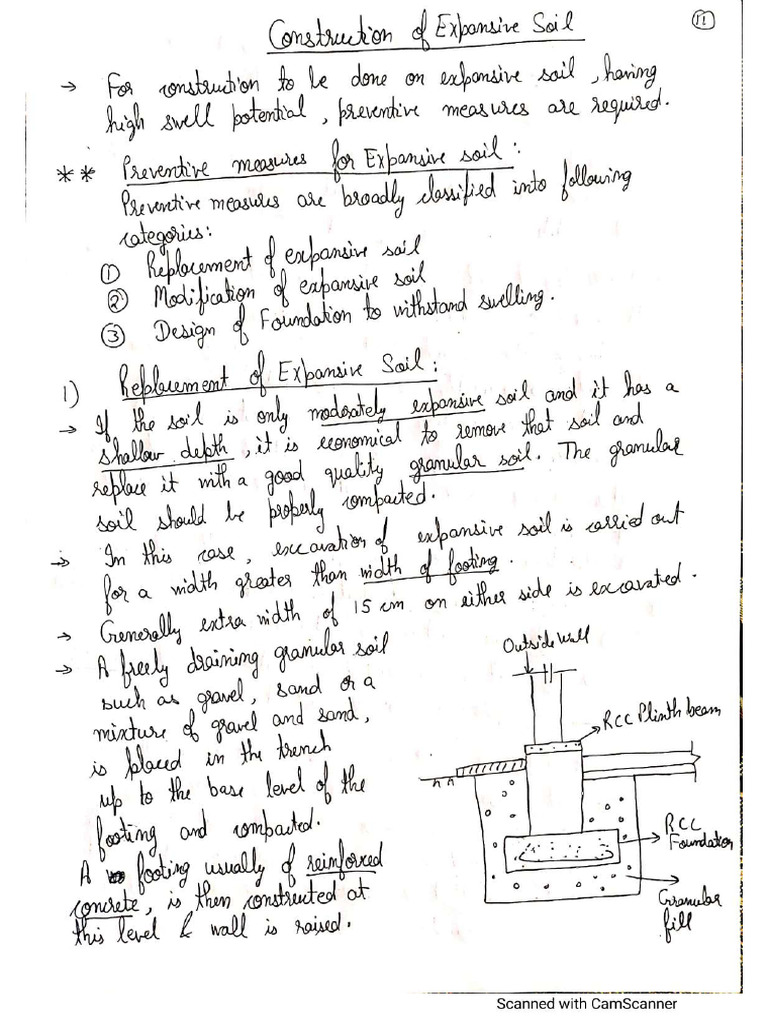 Construction of Expansive Soil
11
→ For construction to be done on expansive soil, having
high swell potential, preventive measures are required.
** Preventive measures for Expansive soil:
Preventive measures are broadly classified into following
categories:
① Replacement of expansive soil
② Modification of expansive soil
③ Design of Foundation to withstand swelling.
1) Replacement of Expansive Soil:
→ If the soil is only moderately expansive soil and it has a
shallow depth, it is economical to remove that soil and
replace it with a good quality granular soil. The granular
soil should be properly compacted.
→ In this case, excavation of expansive soil is carried out
for a width greater than width of footing.
→ Generally extra width of 15 cm on either side is excavated.
→ A freely draining granular soil
such as gravel, sand or a
mixture of gravel and sand,
is placed in the trench
up to the base level of the
footing and compacted.
A footing usually of reinforced
concrete, is then constructed at
this level & wall is raised.
Outside wall
RCC Plinth beam
RCC
Foundation
Granular
fill
Scanned with CamScanner